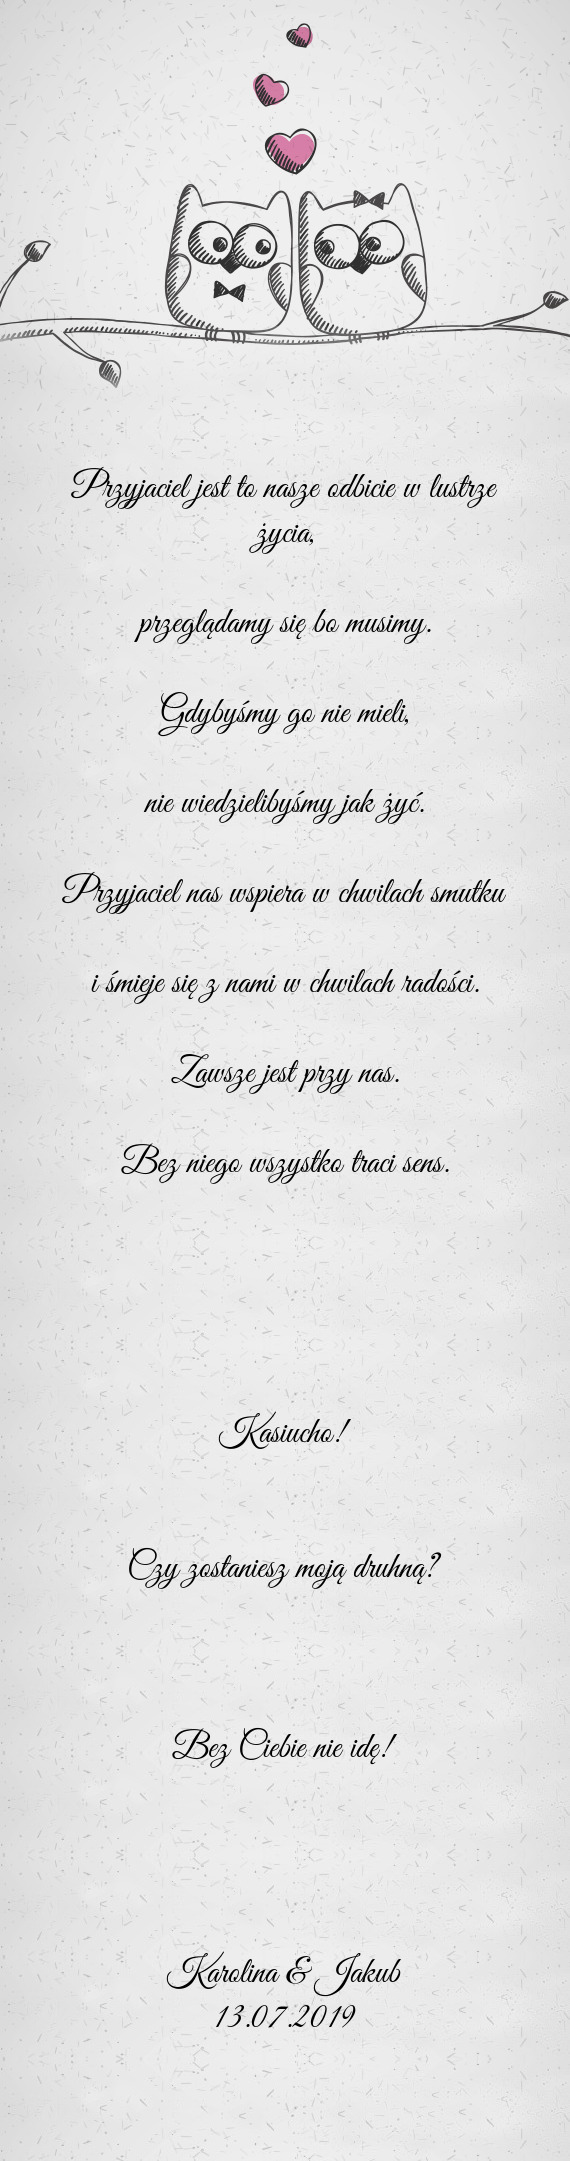 Przyjaciel jest to nasze odbicie w lustrze
życia,
przeglądamy się bo musimy.
Gdybyśmy go nie mieli,
nie wiedzielibyśmy jak żyć.
Przyjaciel nas wspiera w chwilach smutku
i śmieje się z nami w chwilach radości.
Zawsze jest przy nas.
Bez niego wszystko traci sens.
Kasiucho!
Czy zostaniesz moją druhną?
Bez Ciebie nie idę!
Karolina & Jakub
13.07.2019